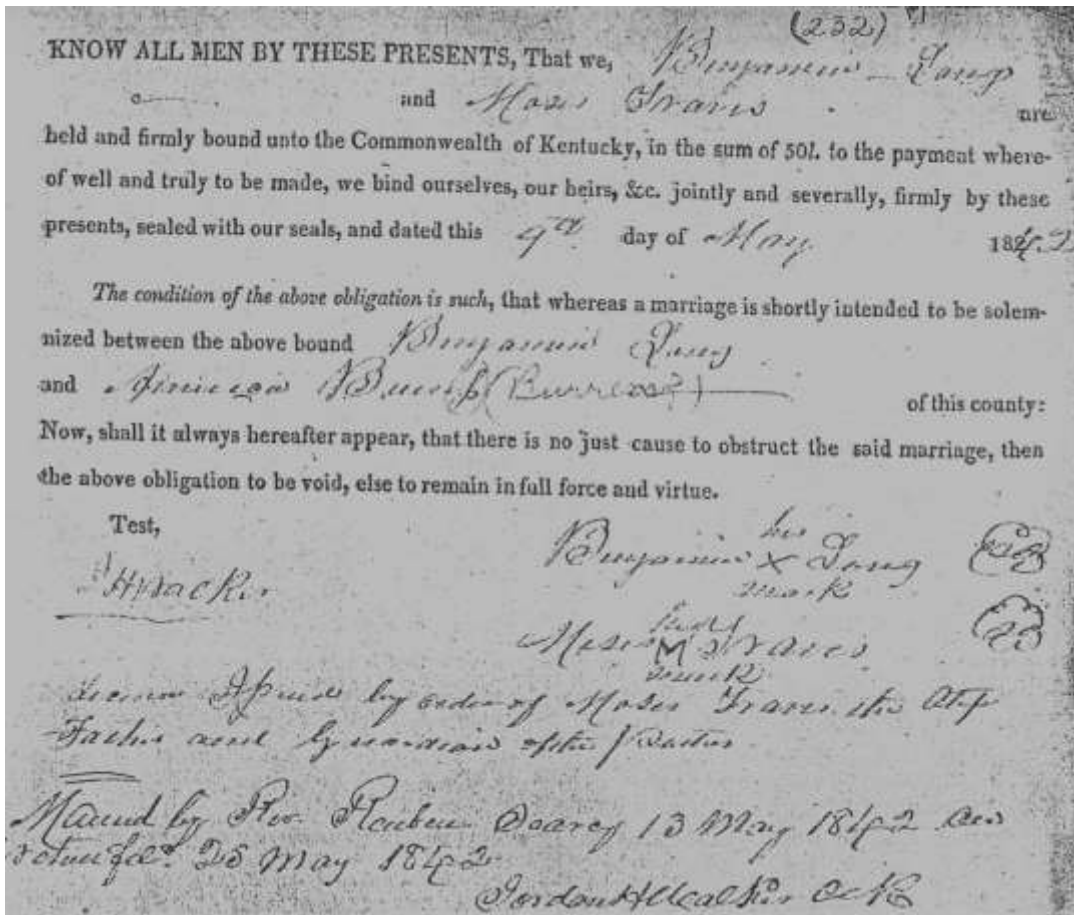 (232)
KNOW ALL MEN BY THESE PRESENTS, That we, Benjamin Long
and Moses Travis are
held and firmly bound unto the Commonwealth of Kentucky, in the sum of 50l. to the payment where-
of well and truly to be made, we bind ourselves, our heirs, &c. jointly and severally, firmly by these
presents, sealed with our seals, and dated this 9th day of May 1842
The condition of the above obligation is such, that whereas a marriage is shortly intended to be solem-
nized between the above bound Benjamin Long
and (Burress?) of this county:
Now, shall it always hereafter appear, that there is no just cause to obstruct the said marriage, then
the above obligation to be void, else to remain in full force and virtue.
Test,
his
Benjamin X Long
mark
Moses M Travis
mark
by order of Moses Travis the Step
Father and Guardian of the
by Rev. Reuben Dearey 13 May 1842
25 May 1842
Jordan H Walker